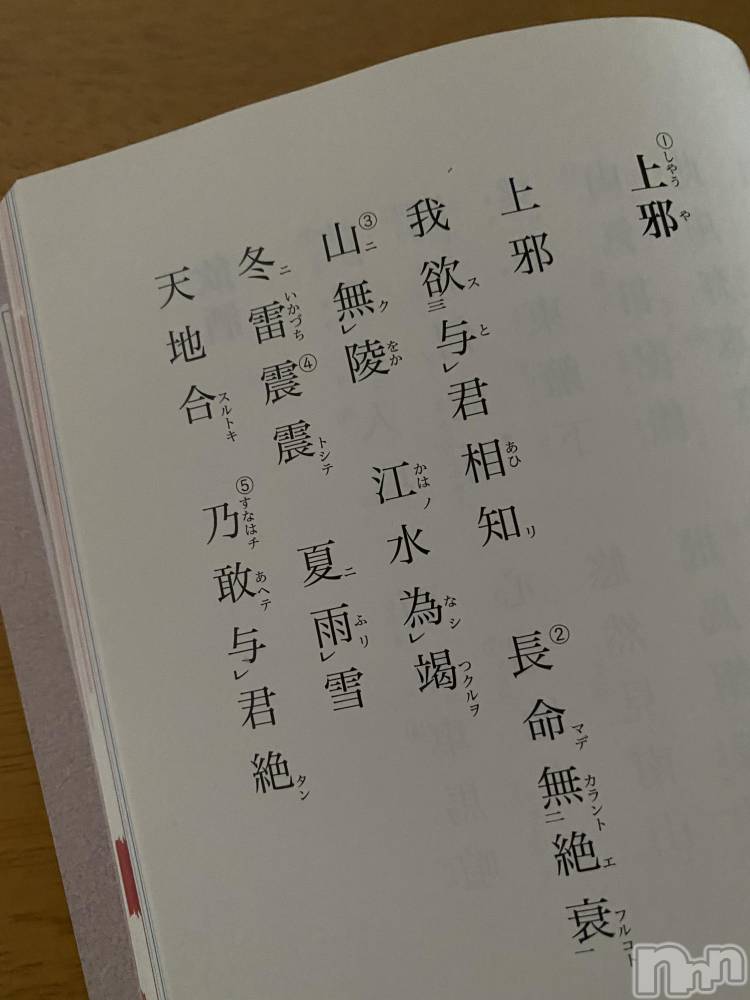 ①上邪 しやう や
上邪
我欲ス三与とレ君相あひ知リ ②長命マデ無カラント二絶エ衰フルコト一
③山ニ無クレ陵をか 江かはノ水為なシレ竭つクルヲ
冬ニ雷いかづち④震震トシテ 夏ニ雨ふリレ雪
天地合スルトキ ⑤乃すなはチ敢あヘテ与レ君絶タン
nnn